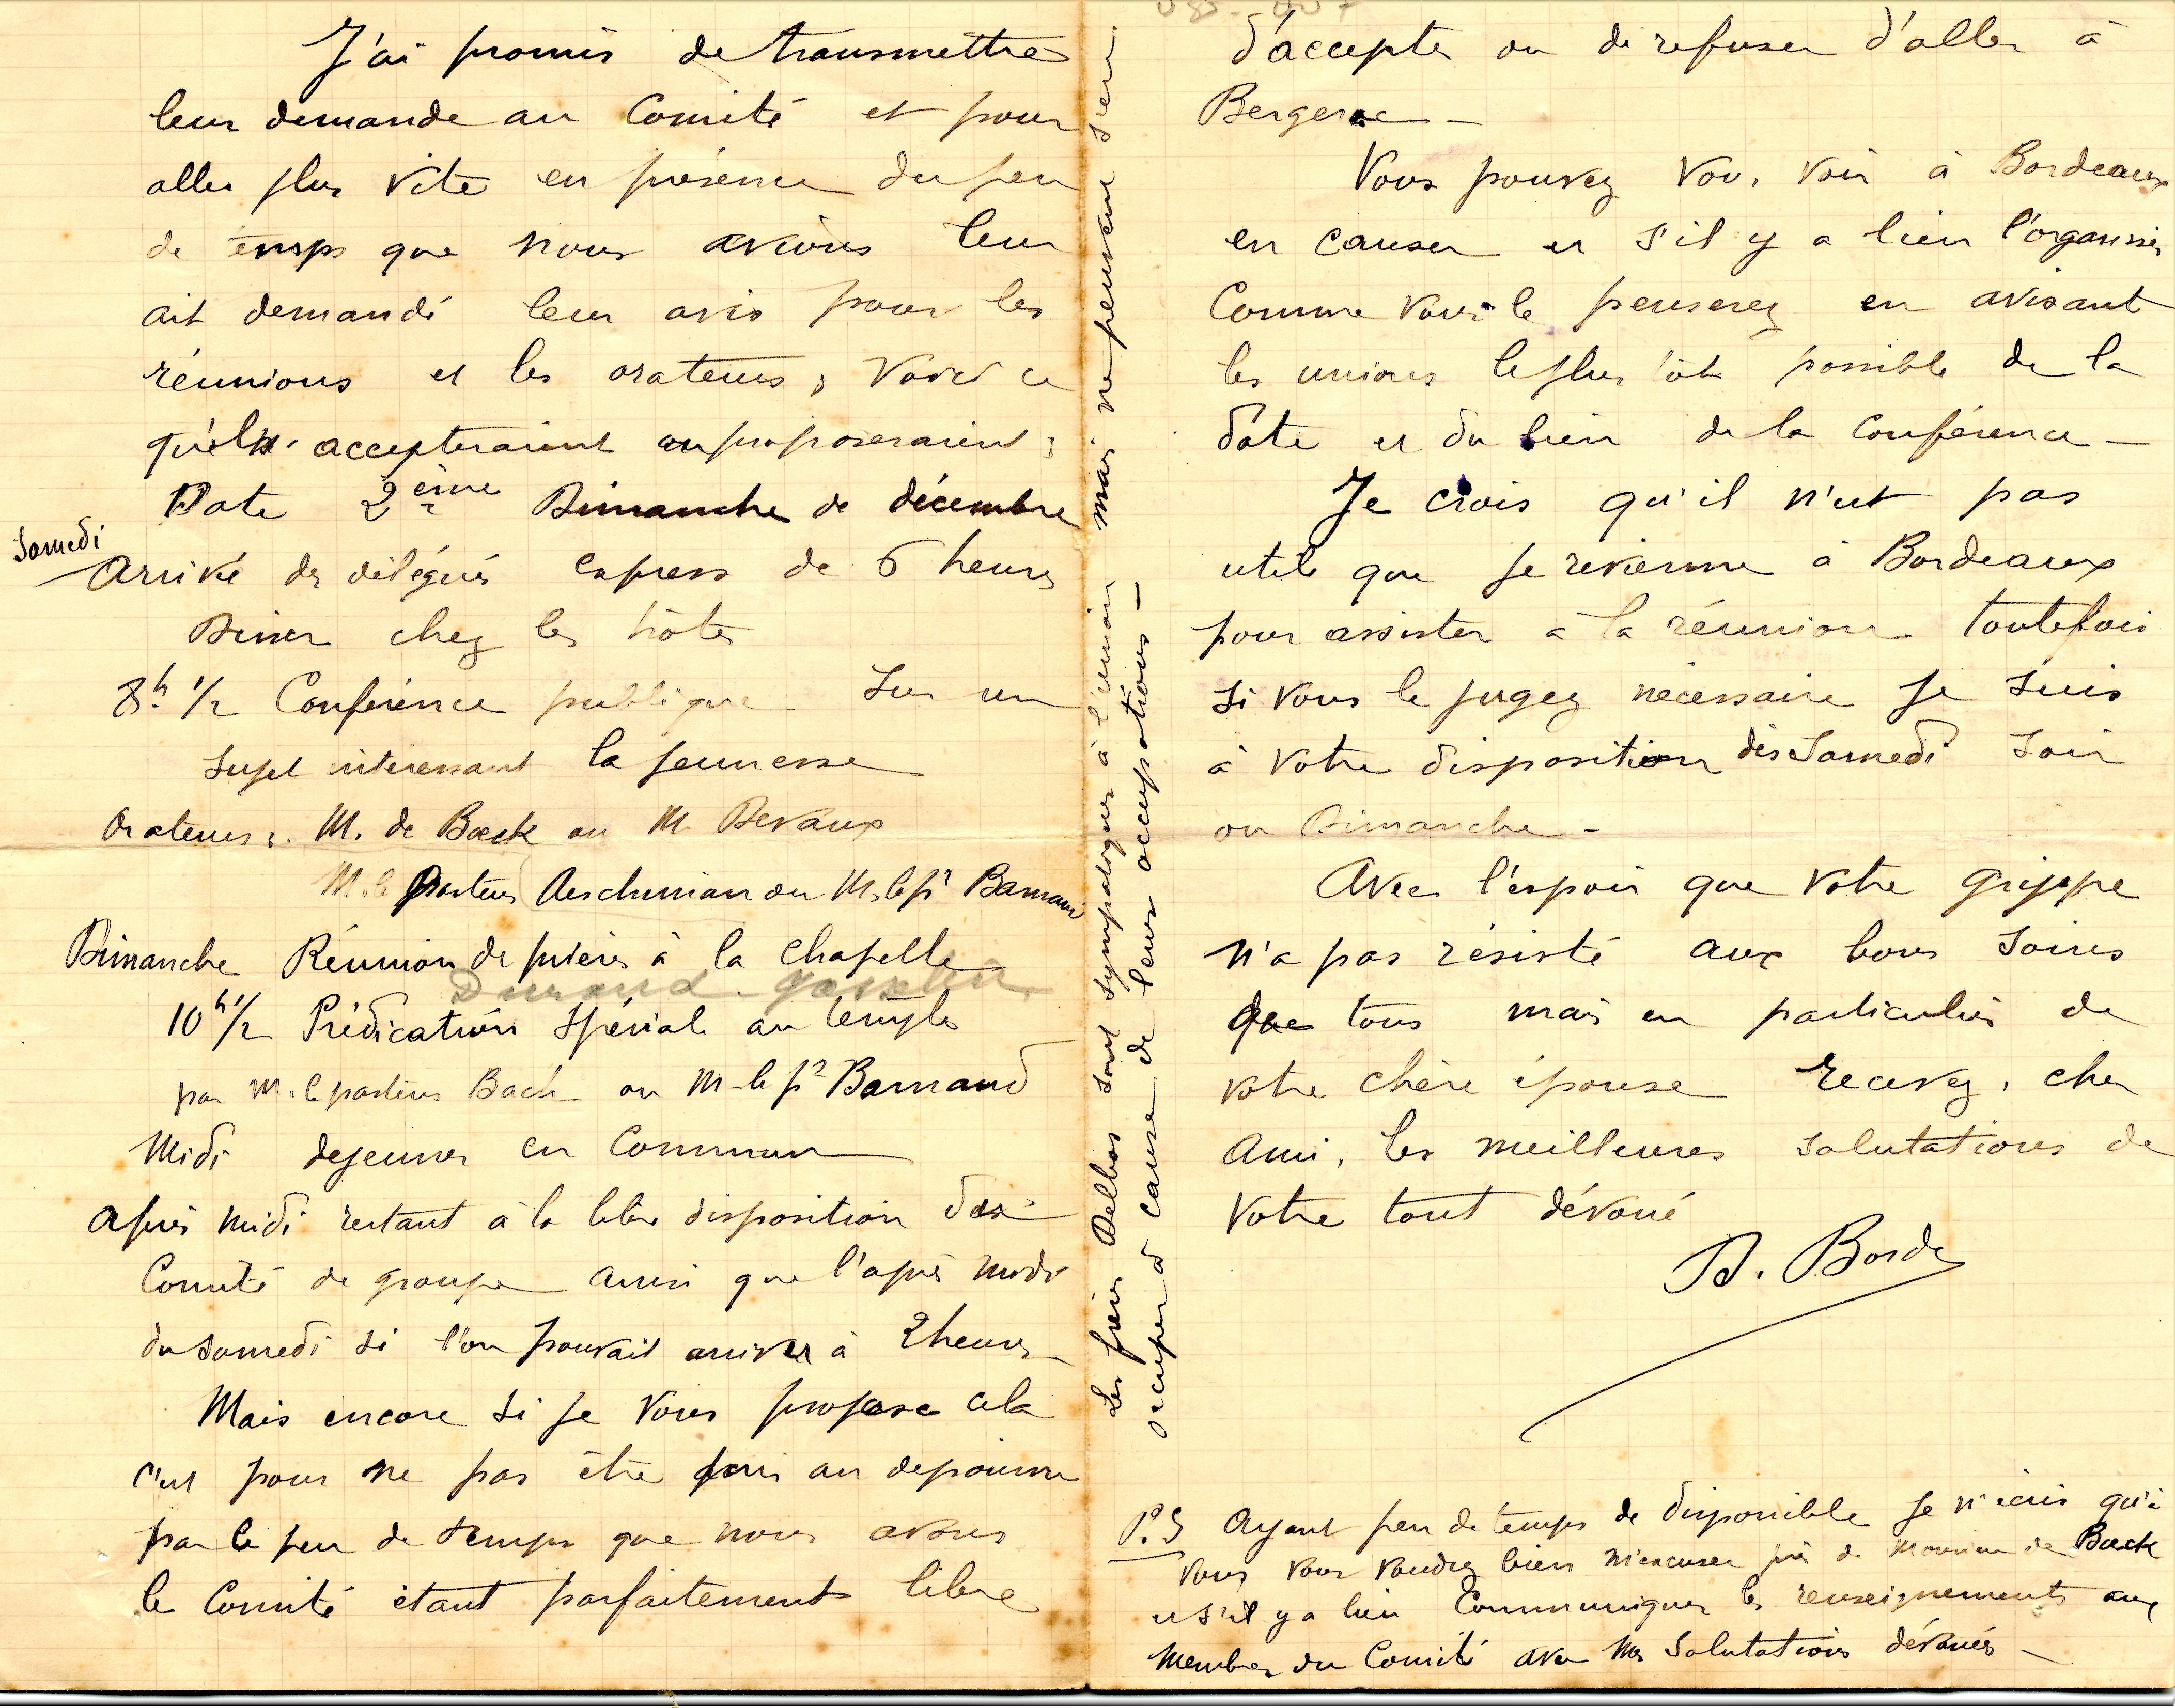 J'ai promis de transmettre
leur demande au Comité et pour
aller plus vite en présence du peu
de temps que nous avions leur
ait demandé leur avis pour les
réunions et les orateurs, Voici ce
qu'ils accepteraient ou proposeraient :
Date 2ème Dimanche de décembre
Samedi
Arrivé des délégués express de 6 heures
Diner chez les hôtes
8h 1/2 Conférence publique sur un
sujet interessant la jeunesse
Orateurs : M. de Boeck ou M. Devaux
M. le Pasteur Aeschimian ou M. le pr Barnaud
Dimanche Réunion de prières à la chapelle
Durand-Gasselin
10 h 1/2 Prédication spéciale au temple
par M. le pasteur Bach ou M. le pr Barnaud
Midi dejeuner en Commun
Après midi restant à la libre disposition des
Comité de groupe ainsi que l'après midi
du samedi si l'on pouvait arriver à 2 heures
Mais encore si je vous propose cela
c'est pour ne pas être pris au depourvu
par le peu de temps que nous avons
le Comité étant parfaitement libre
Les frères Delbos sont sympatiques à l'union mais ne peuvent s'en
occuper à cause de leurs occupations —
d'accepter ou de refuser d'aller à
Bergerac —
Vous pouvez vous voir à Bordeaux
en causer et s'il y a lieu l'organiser
Comme vous le penserez en avisant
les unions le plus tôt possible de la
date et du lieu de la Conférence —
Je crois qu'il n'est pas
utile que je revienne à Bordeaux
pour assister a la réunion toutefois
si vous le jugez nécessaire je suis
à votre disposition dès Samedi soir
ou Dimanche —
Avec l'espoir que votre grippe
n'a pas résisté aux bons soins
que tous mais en particulier de
votre chère épouse recevez, cher
Ami, les meilleures salutations de
votre tout dévoué
Borde
P.S Ayant peu de temps de disponible je n'écris qu'à
vous vous voudrez bien m'excuser près de Monsieur de Boeck
et s'il y a lieu Communiquer les renseignements aux
Membres du Comité avec mes salutations dévouées —